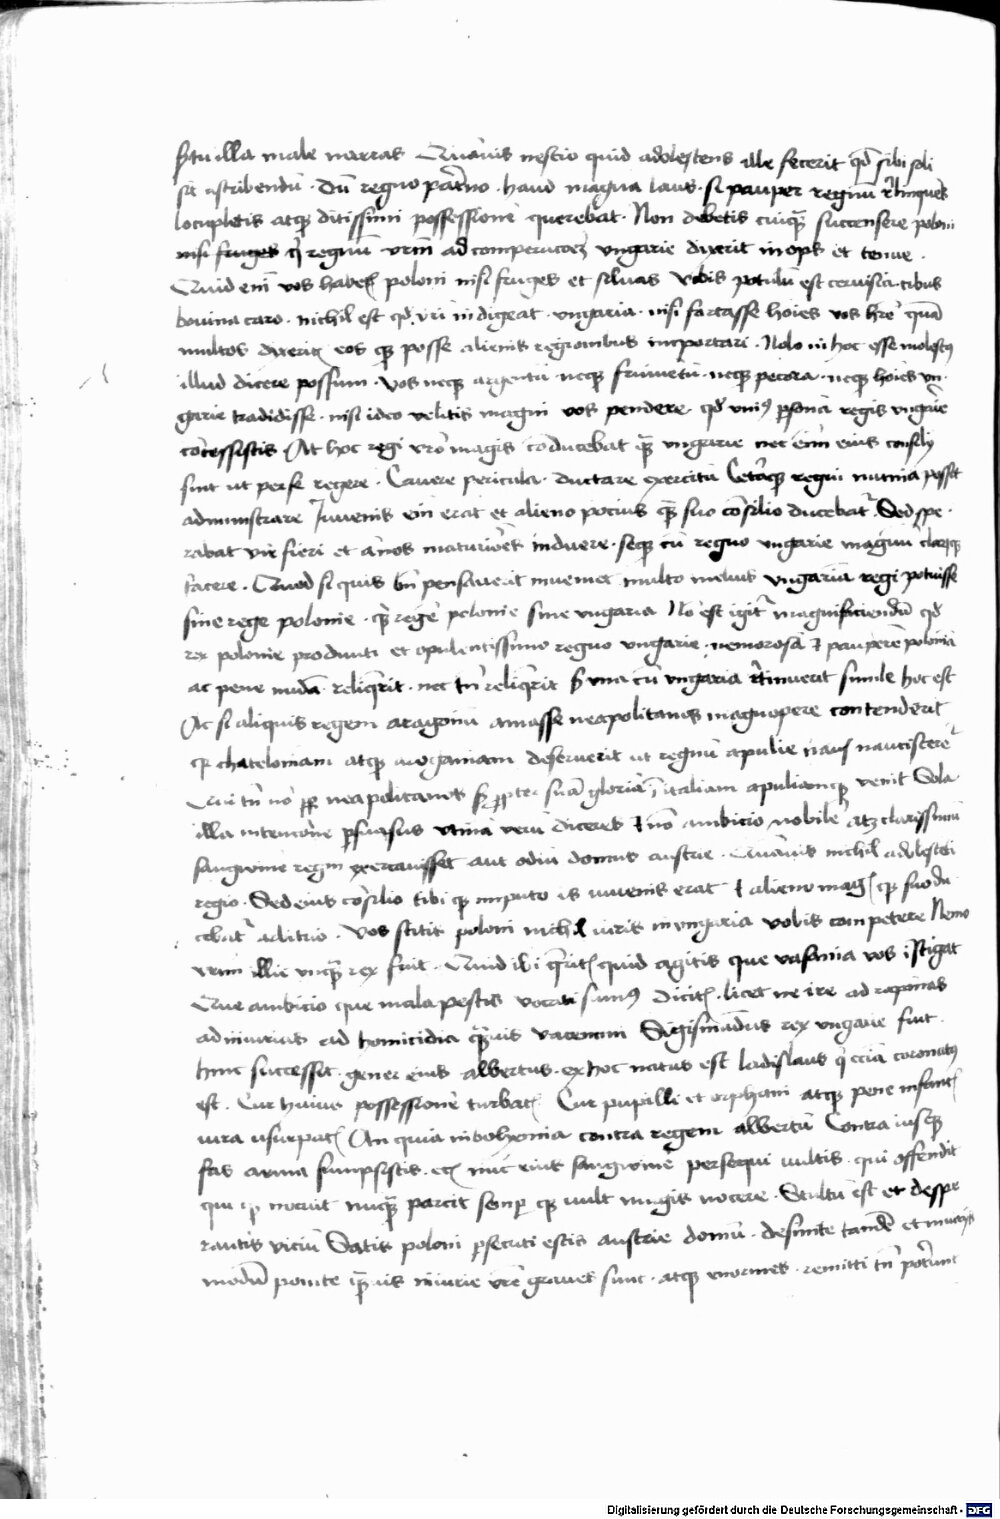 sz tu illa male narras Quāuis nescio quid adolescens ille fecerit qd sibi soli
sit ascribendū . dū regno pat̄no . haud magna laus . si pauper regnū r̄linquēs
locupletis atqz ditissimi possessionē querebat . Non debetis cuiqz̄ succensere poloni
nisi fruges qi regnū vrm̄ ad comperacoēz vngarie dixerit inops et tenue .
Quid eni vos habetz poloni nisi fruges et siluas vobis potulū est ceruisia . cibus
bouina caro . nichil est qd vri indigeat . vngaria . nisi fortasse hoīes vos hrē quā
multos dixeritz eos qz posse alienis regionibus importari . Nolo in hoc esse molestus
illud dicere possum . vos neqz argentū neqz frumētū . neqz pecora . neqz hoīes vn
garie tradidisse . nisi ideo velitis magni vos pendere qd vniꝰ psonā regis vngarie
cōcessistis At hoc regi vrō magis cōducebat qz̄ vngarie nec enī eius consily
sint ut per se regere . Cauere pericula . ductare exercitū Ceteraqz regni munia posset
administrare Iuuenis eni erat et alieno pocius qz̄ suo cōsilio ducebat . Sed spe
rabat vir fieri et ānos maturiores induere . seqz cū regno vngarie magnū clarūqz
facere . Quod si quis bn̄ pensauerit inueniet multo melius vngariā regi potuisse
sine rege polonie . qz̄ regē polonie sine vngaria Nō est igit̄ magnificiendū qd
rex polonie produnti et opulentissimo regno vngarie . nemorosā et pauperē poloniā
ac pene nudā reliqrit . nec tn̄ reliqrit sz vna cū vngaria r̄tinuerit simile hoc est
Ac si aliquis regem aragonū amasse neapolitanos magnopere contenderit
qz chateloniam atqz aragoniam deseruerit ut regnū apulie nancisceret̄
Qui tn̄ nō pp̄ neapolitanos sz ppter suā gloriā ī italiam apuliamqz venit Sola
illa intencione psuasus vtinā verū diceres et nō ambicio nobile atz clarissimū
sanguine regm̄ execrauisset aut odiū domus austrie . Quāuis nichil adolescēti
regio . Sed eius cōsilio tibi qz imputo is iuuenis erat et alieno magz qz suo du
cebat̄ arbitrio . Vos scitis poloni nichil iuris in vngaria vobis competere Nemo
vrm illic vnqz̄ rex fuit . Quid ibi qritz quid agitis que vasania vos istigat
Que ambicio que mala pestis vocati sumꝰ dicitz . licet ne ire ad rapinas
ad iniurias ad homicidia qz̄uis vacemini Sigismūdus rex vngarie fuit
hinc successit . gener eius albertus . ex hoc natus est ladislaus qi eciā coronatꝰ
est . Cur huius possessionē turbatz Cur pupilli et orphani atqz pene infantz
iura usurpatz An quia in bohemia contra regem albertū Contra iusqz
fas arma sumpsistis . etz nūc eius sanguinē persequi uultis . qui offendit
qui qz nocuit nūqz̄ parcit semp qz uult magis nocere . Stultū est et despe
rantis viciū Satis poloni psecuti estis austrie domū . desinite tandē et
modū ponite qz̄uis iniurie vrē graues sunt . atqz enormes . remitti tn̄ poterūt
Digitalisierung gefördert durch die Deutsche Forschungsgemeinschaft - DFG